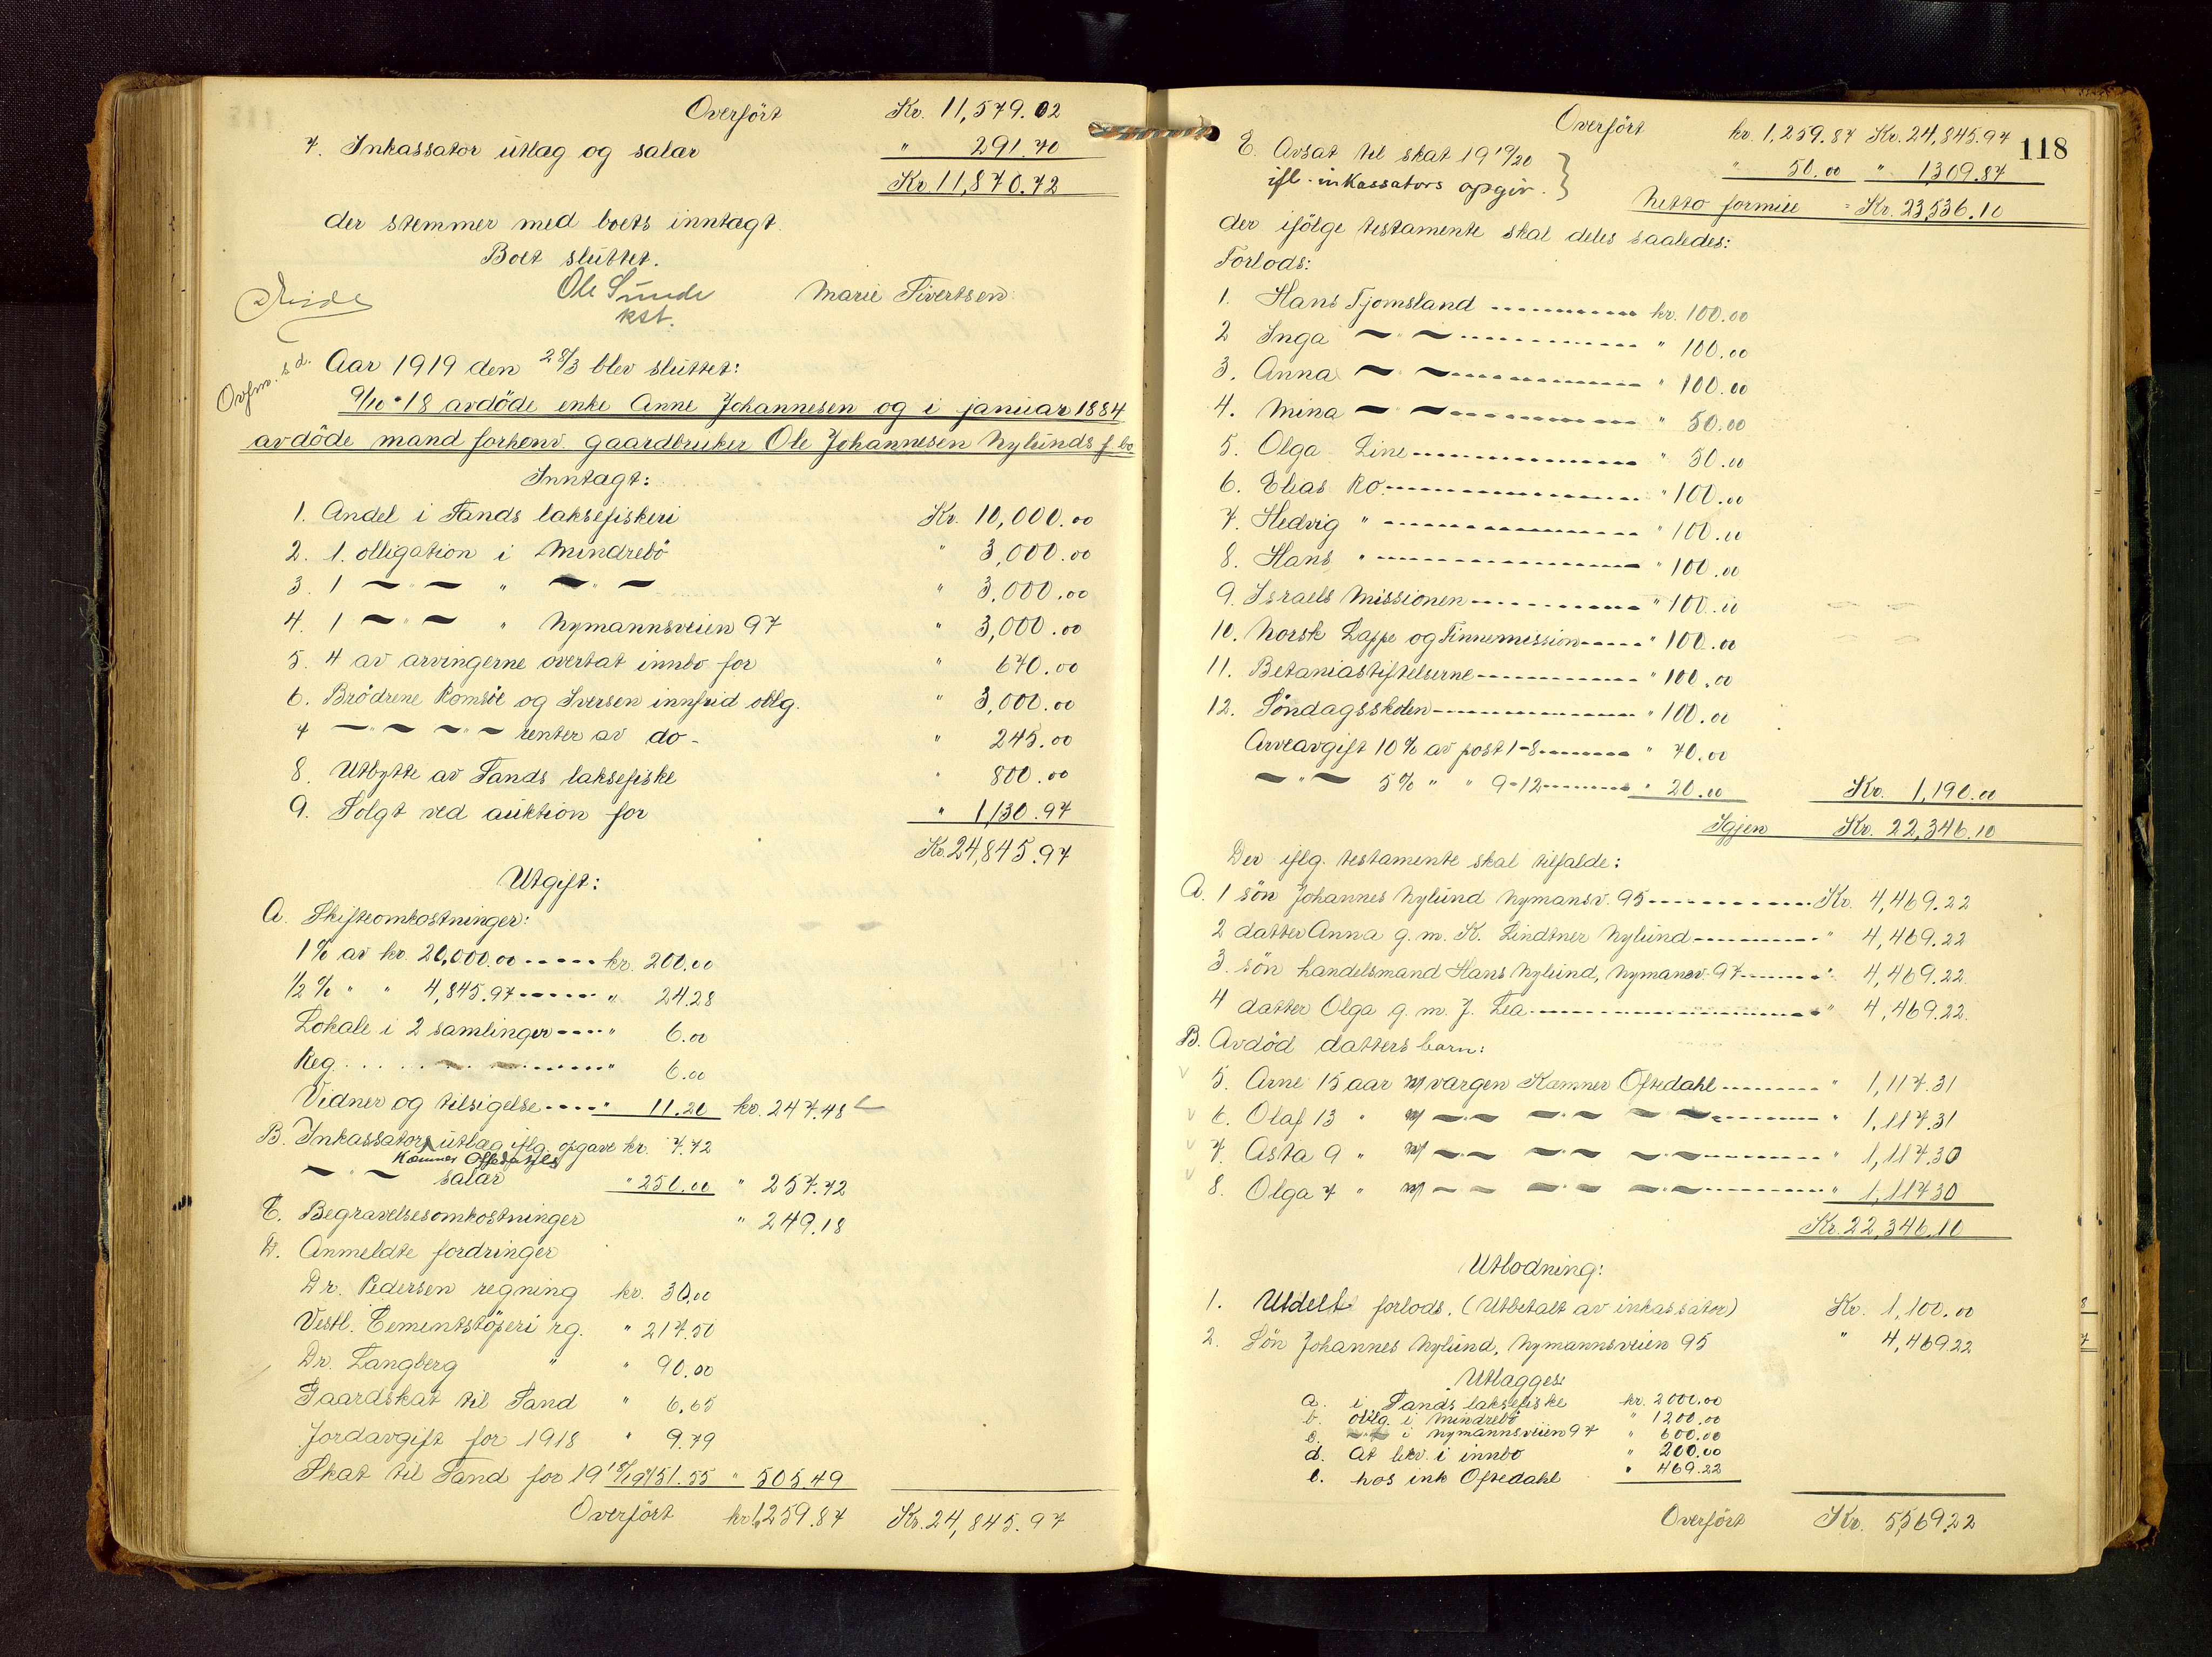 Overført Kr. 11,579.02
7. Inkassator utlag og salar " 291.70
Kr 11,870.72
der stemmer med boets inntagt.
Boet sluttet.
Ole Sunde Marie Sivertsen
kst.
Aar 1919 den 28/3 blev sluttet:
9/10-18 avdöde enke Anne Johannesen og i januar 1884
avdöde mand forhenv. gaardbruker Ole Johannesen Nylunds f.bo
Inntagt:
1. Andel i Sands laksefiskeri Kr. 10,000.00
2. 1. obligation i Mindrebö " 3,000.00
3. 1 — " — " — " — " 3,000.00
4. 1 — " — " Nymannsveien 97 " 3,000.00
5. 4 av arvingerne overtat innbo for " 670.00
6. Brödrene Romsöe og Iversen innfrid oblg. " 3,000.00
7 — " — — " — renter av do - " 245.00
8. Utbytte av Sands laksefiske " 800.00
9. Solgt ved auktion for " 1,130.97
Kr. 24,845.97
Utgift:
A. Skifteomkostninger:
1% av kr. 20,000.00 ----- kr. 200.00
1/2% " " 4,845.97 ----- " 24.28
Lokale i 2 samlinger ---- " 6.00
Reg. ........ " 6.00
Vidner og tilsigelse ---- " 11.20 kr. 247.48
B. Inkassators utlag iflg. opgave kr. 7.72
Kæmner Oftedahls
— " — salar " 250.00 " 257.72
C. Begravelsesomkostninger " 249.18
D. Anmeldte fordringer
Dr. Pedersen regning kr. 30.00
Vestl. Cementstöperi rg. " 217.50
Dr. Langberg " " 90.00
Gaardskat til Sand " 6.65
Jordavgift for 1918 " 9.79
Skat til Sand for 1918/19 " 151.55 " 505.49
Overført kr. 1,259.87 Kr. 24,845.97
118
Overført kr. 1,259.87 Kr. 24,845.97
E. Avsat til skat 1919/20
ifl. inkassators opgiv. } " 50.00 " 1309.87
Netto formue = Kr. 23,536.10
der ifölge testamente skal deles saaledes:
Forlods:
1. Hans Tjomsland ---------- kr. 100.00
2 Inga — " — ---------- " 100.00
3. Anna — " — ---------- " 100.00
4. Mina — " — ---------- " 50.00
5. Olga Line ---------- " 50.00
6. Elias Ro ---------- " 100.00
7. Hedvig " ---------- " 100.00
8. Hans " ---------- " 100.00
9. Israels Missionen ---------- " 100.00
10. Norsk Lappe og Finnemission ---- " 100.00
11. Betaniastiftelserne ---------- " 100.00
12. Söndagsskolen ---------- " 100.00
Arveavgift 10% av post 1-8 ------- " 70.00
— " — 5% " " 9-12 ------- " 20.00 Kr. 1,190.00
Igjen Kr. 22,346.10
Der iflg. testamente skal tilfalde:
A. 1 sön Johannes Nylund Nymansv. 95 ---------- Kr. 4,469.22
2 datter Anna g. m. K. Lindtner Nylund ---------- " 4,469.22
3. sön handelsmand Hans Nylund, Nymansv. 97 ------- " 4,469.22
4 datter Olga g. m. J. Lea ---------- " 4,469.22.
B. Avdöd datters barn:
5. Arne 15 aar m/ vargen Kæmner Oftedahl ------- " 1,117.31
6. Olaf 13 " m/ — " — — " — — " — ------- " 1,117.31
7. Asta 9 " m/ — " — — " — — " — ------- " 1,117.30
8. Olga 7 " m/ — " — — " — — " — ------- " 1,117.30
Kr. 22,346.10
Utlodning:
1. Utdelt forlods. (Utbetalt av inkassator) Kr. 1,100.00
2. Sön Johannes Nylund, Nymannsveien 95 " 4,469.22
Utlægges:
a. i Sands laksefiske kr. 2000.00
b. oblig. i Mindrebö " 1200.00
c. — " — i Nymannsveien 97 " 600.00
d. At lev. i innbo " 200.00
e. hos ink Oftedahl " 469.22
Overført Kr. 5,569.22